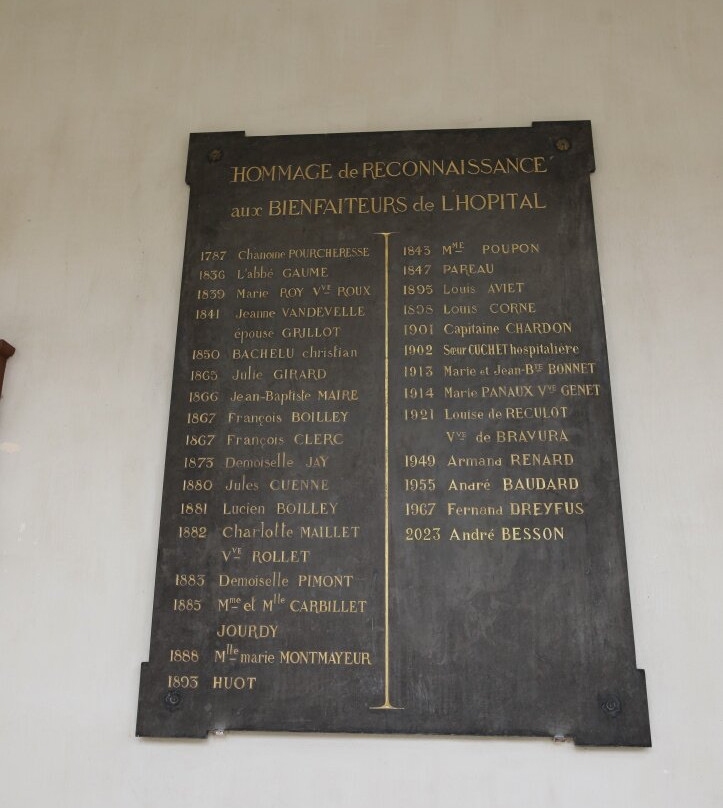 HOMMAGE de RECONNAISSANCE
aux BIENFAITEURS de LHOPITAL
1787 Chanoine POURCHERESSE
1836 L'abbé GAUME
1839 Marie ROY Vve ROUX
1841 Jeanne VANDEVELLE
épouse GRILLOT
1850 BACHELU christian
1865 Julie GIRARD
1866 Jean-Baptiste MAIRE
1867 François BOILLEY
1867 François CLERC
1873 Demoiselle JAY
1880 Jules CUENNE
1881 Lucien BOILLEY
1882 Charlotte MAILLET
Vve ROLLET
1883 Demoiselle PIMONT
1885 Mme et Mlle CARBILLET
JOURDY
1888 Mlle marie MONTMAYEUR
1893 HUOT
1843 MME POUPON
1847 PAREAU
1895 Louis AVIET
1898 Louis CORNE
1901 Capitaine CHARDON
1902 Sœur CUCHET hospitalière
1913 Marie et Jean-Bte BONNET
1914 Marie PANAUX Vve GENET
1921 Louise de RECULOT
Vve de BRAVURA
1949 Armand RENARD
1955 André BAUDARD
1967 Fernand DREYFUS
2023 André BESSON